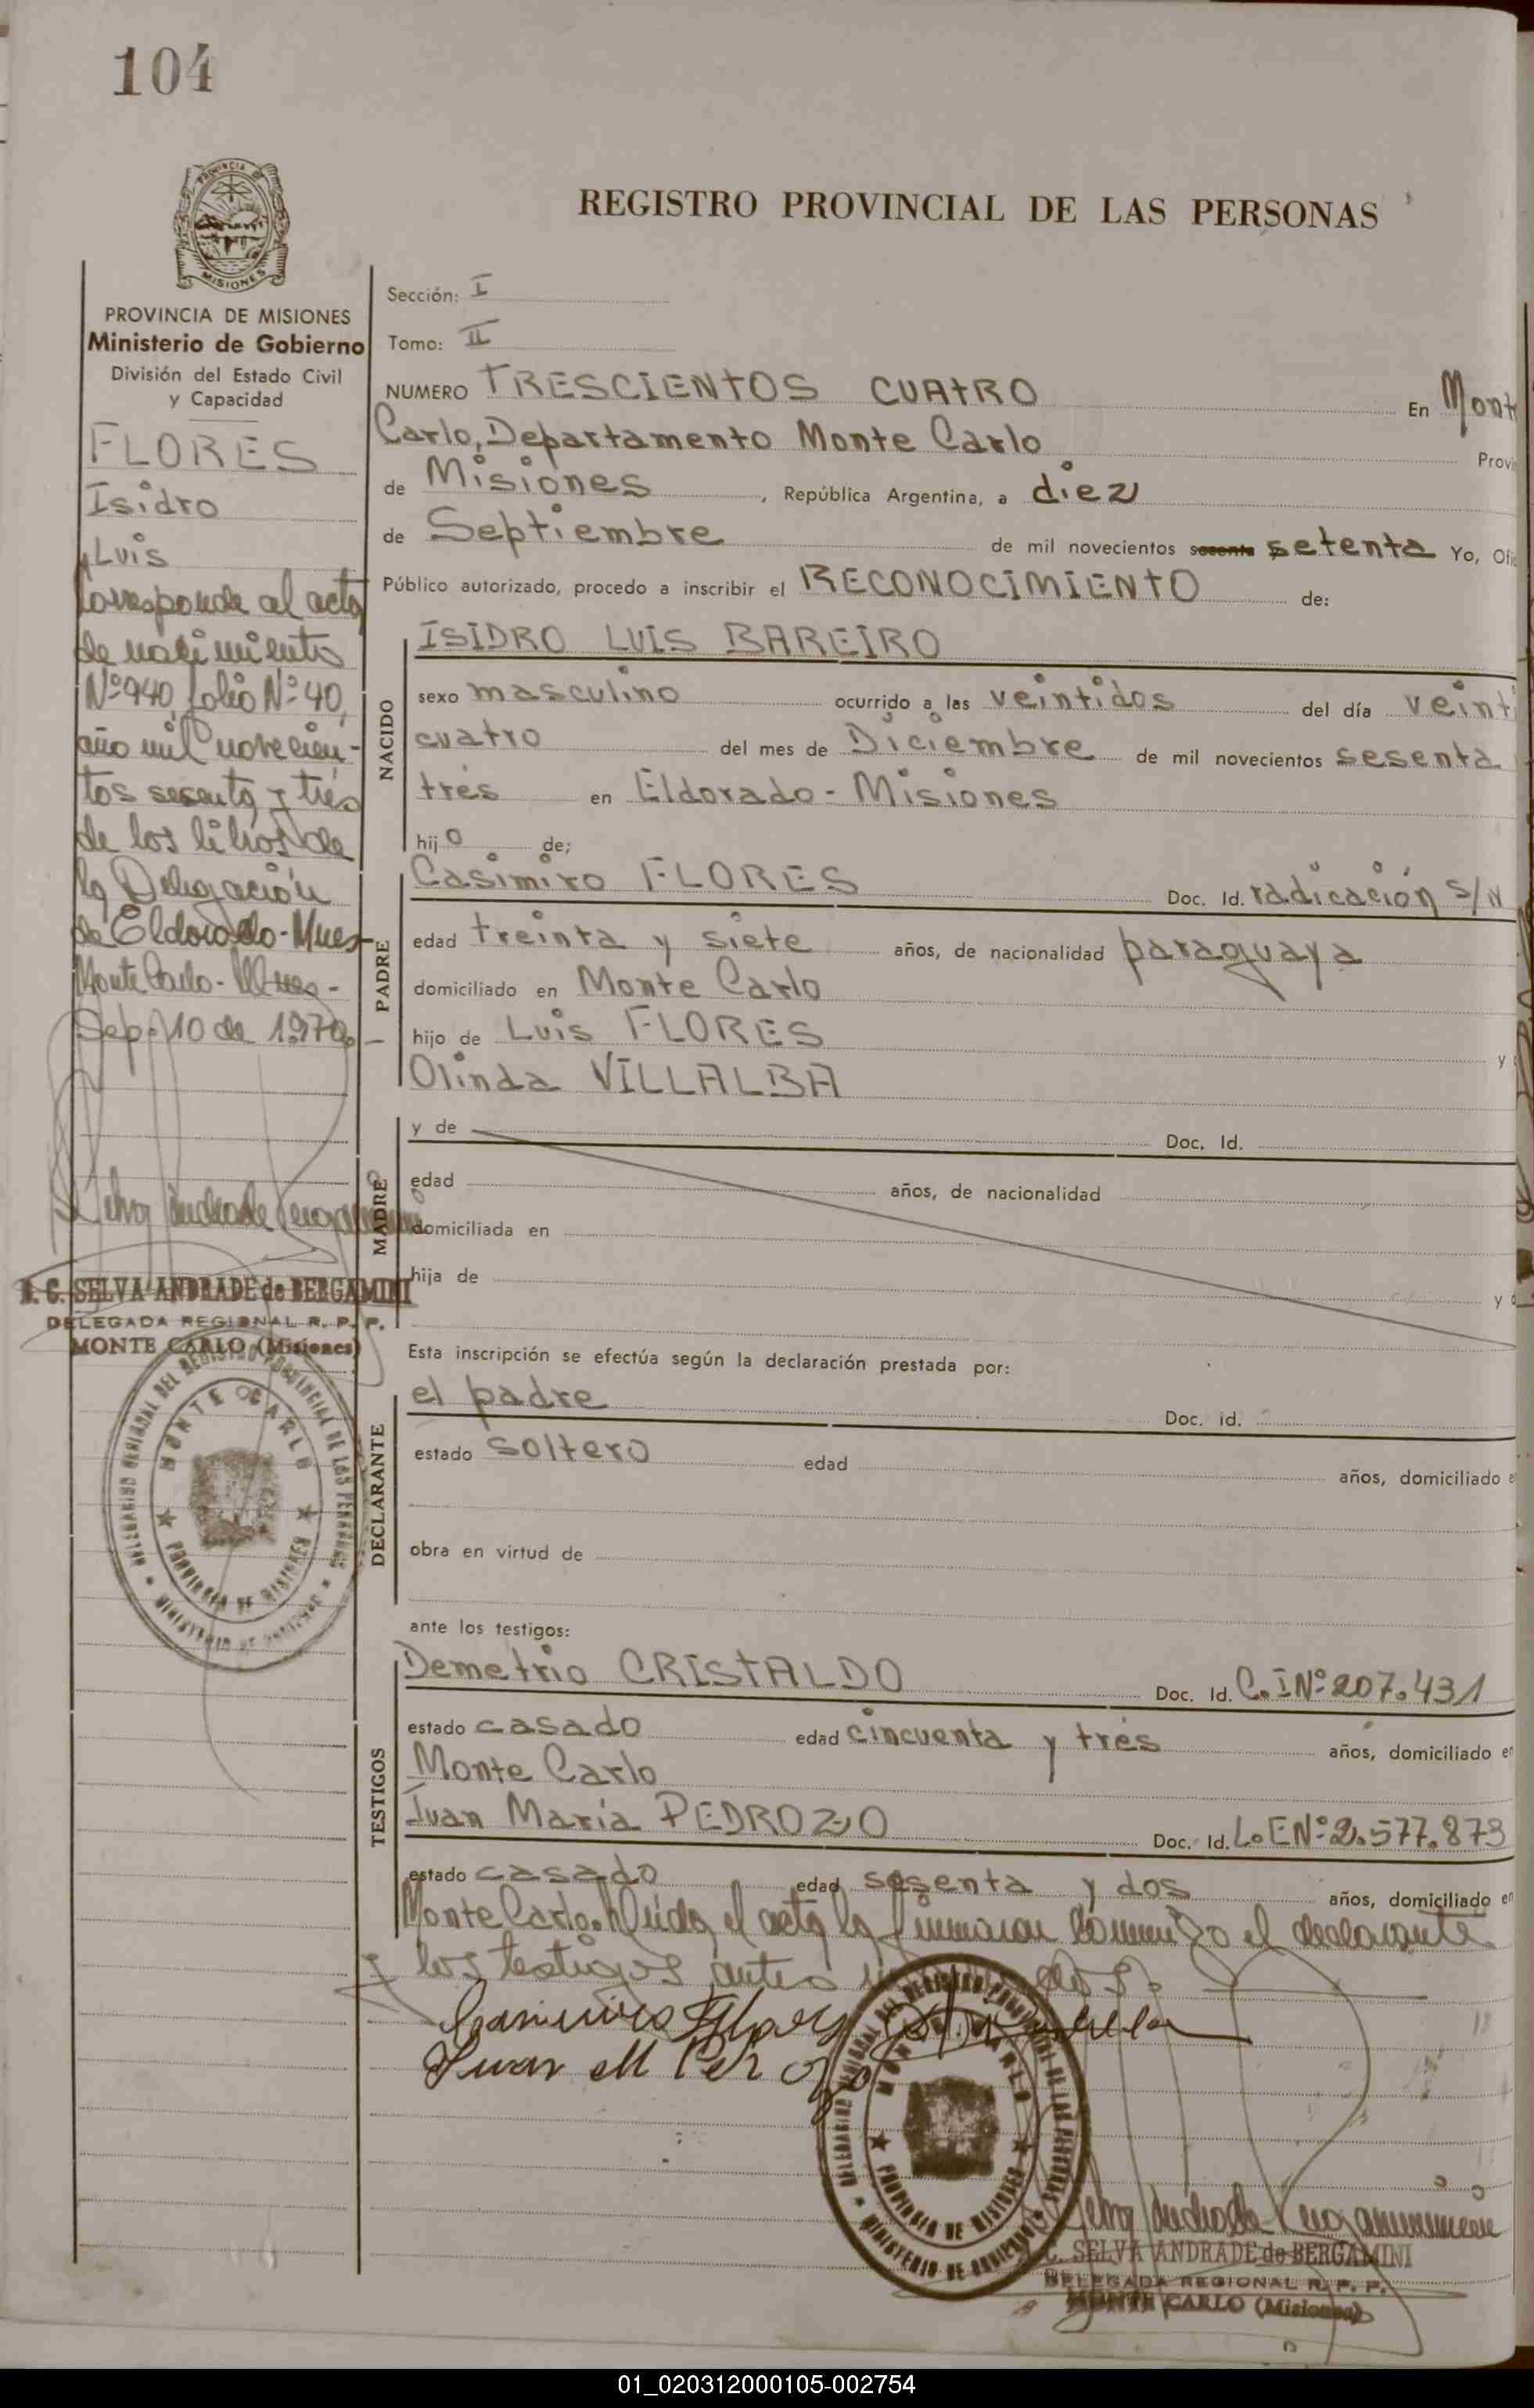 104
PROVINCIA DE MISIONES
REGISTRO PROVINCIAL DE LAS PERSONAS
PROVINCIA DE MISIONES
Ministerio de Gobierno
División del Estado Civil
y Capacidad
FLORES
Isidro
Luis
Corresponde al acta
de nacimiento
Nº 940, folio Nº 40,
año mil novecien-
tos sesenta y tres
de los libros de
la Delegación
de Eldorado - Mnes
Monte Carlo - Mnes -
Sep. 10 de 1.970.
S. C. SELVA ANDRADE de BERGAMINI
DELEGADA REGIONAL R. P. P.
MONTE CARLO (Misiones)
DELEGACION REGIONAL DEL REGISTRO PROVINCIAL DE LAS PERSONAS
MONTE CARLO
PROVINCIA DE MISIONES
MINISTERIO DE GOBIERNO
Sección: I
Tomo: II
NUMERO TRESCIENTOS CUATRO En Mont
Carlo, Departamento Monte Carlo Provi
de Misiones, República Argentina, a diez
de Septiembre de mil novecientos sesenta setenta Yo, Ofic
Público autorizado, procedo a inscribir el RECONOCIMIENTO de:
NACIDO
ISIDRO LUIS BAREIRO
sexo masculino ocurrido a las veintidos del día veinti
cuatro del mes de Diciembre de mil novecientos sesenta
tres en Eldorado - Misiones
hijo de;
PADRE
Casimiro FLORES Doc. Id. radicación S/N
edad treinta y siete años, de nacionalidad paraguaya
domiciliado en Monte Carlo
hijo de Luis FLORES y
Olinda VILLALBA
MADRE
y de Doc. Id.
edad años, de nacionalidad
domiciliada en
hija de y
Esta inscripción se efectúa según la declaración prestada por:
DECLARANTE
el padre Doc. id.
estado soltero edad años, domiciliado e
obra en virtud de
ante los testigos:
TESTIGOS
Demetrio CRISTALDO Doc. Id. C. I Nº 207.431
estado casado edad cincuenta y tres años, domiciliado en
Monte Carlo
Juan María PEDROZO Doc. Id. L. E Nº 2.577.873
estado casado edad sesenta y dos años, domiciliado en
Monte Carlo. Leída el acta la firmaron conmigo el declarante
y los testigos antes
Casimiro Flores
Juan M Pedrozo
DELEGACION REGIONAL DEL REGISTRO PROVINCIAL DE LAS PERSONAS
MONTE CARLO
PROVINCIA DE MISIONES
MINISTERIO DE GOBIERNO
C. SELVA ANDRADE de BERGAMINI
DELEGADA REGIONAL R. P. P.
MONTE CARLO (Misiones)
01_020312000105-002754